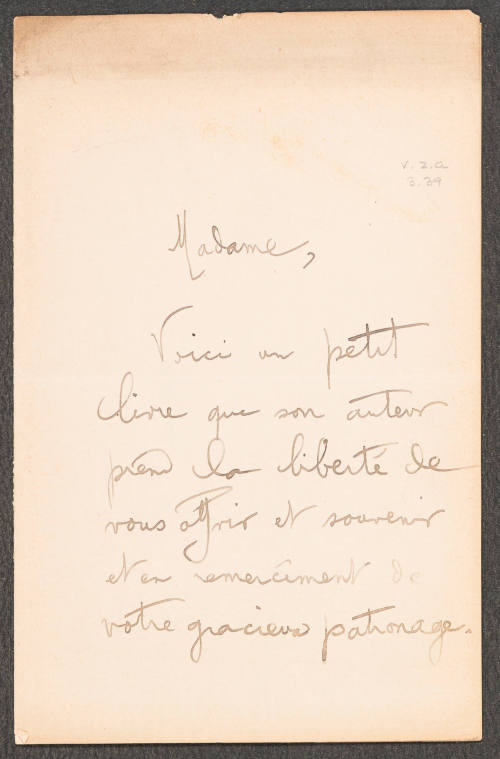 v.2.a
3.39
Madame,
Voici un petit
livre que son auteur
prend la liberté de
vous offrir et souvenir
et en remerciment de
votre gracieux patronage.